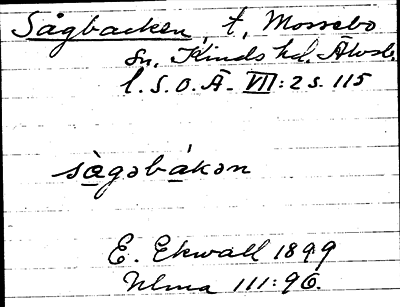 Sågbacken, t, Mossebo
sn, Kinds hd. Älvsb.
l. S.O.Ä- VII:2 s. 115
sågəbákən
E. Ekwall 1899
Ulma 111:96.